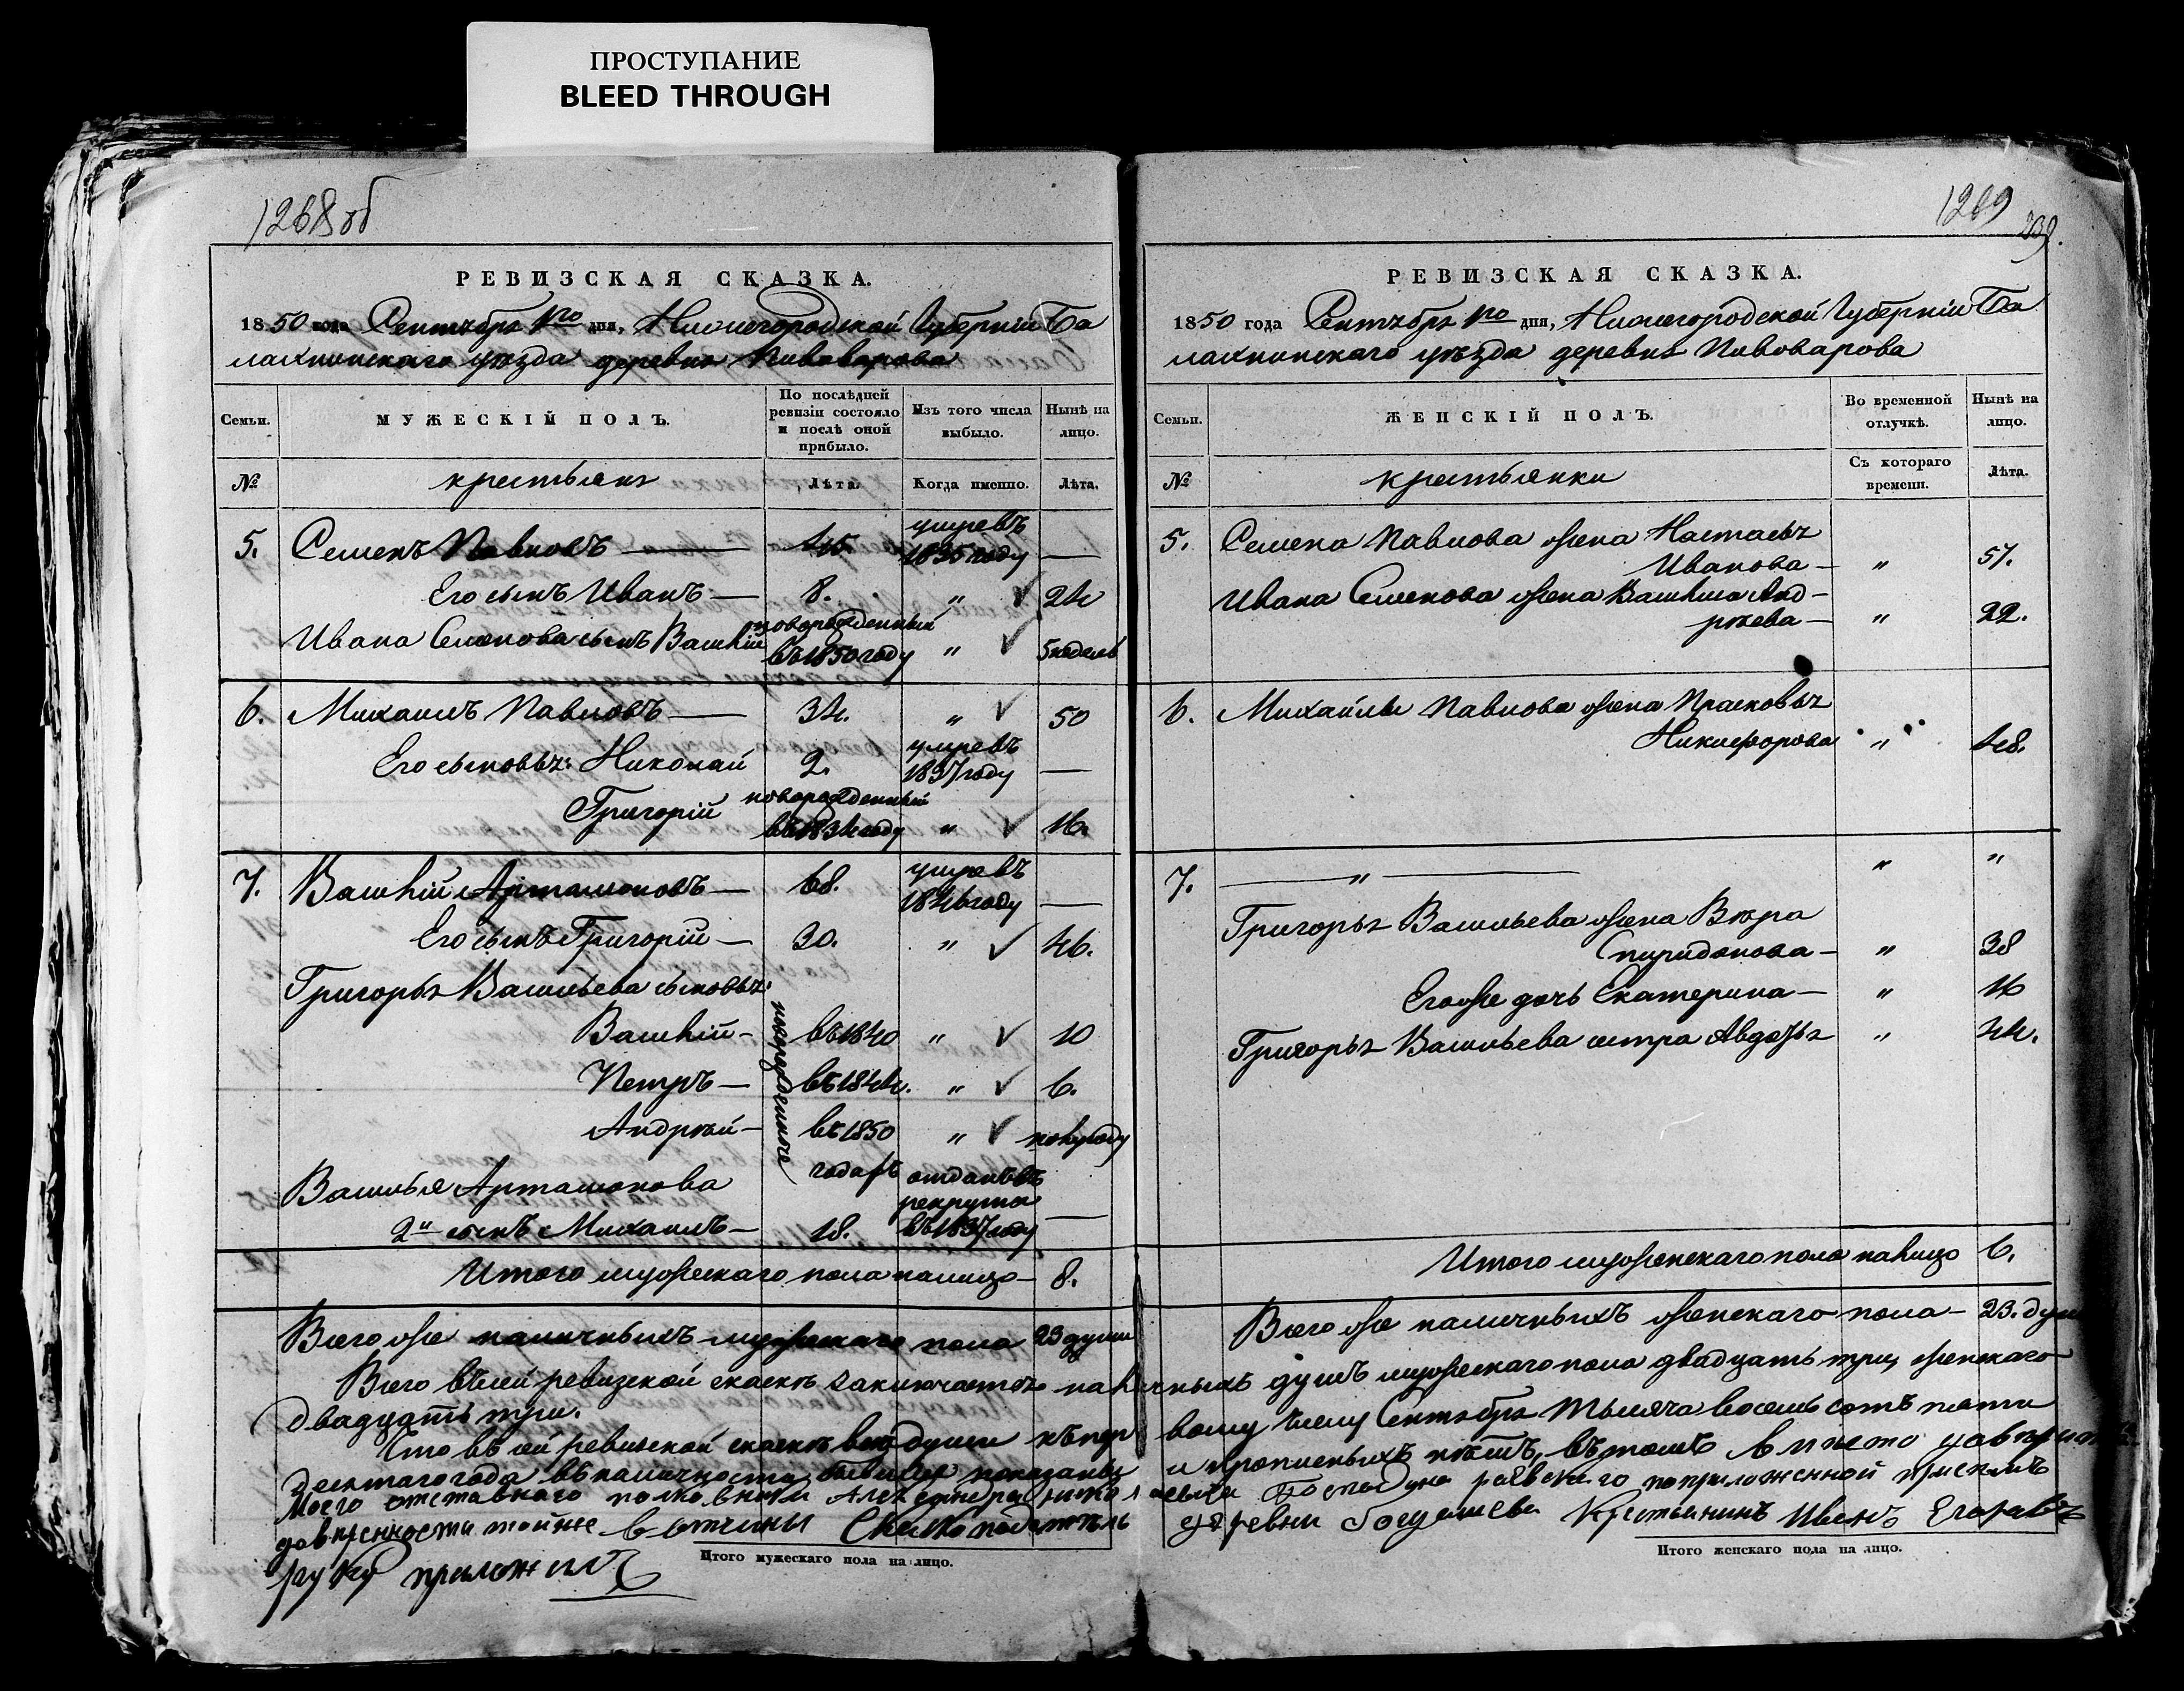 ПРОСТУПАНИЕ
BLEED THROUGH
1268 об
РЕВИЗСКАЯ СКАЗКА.
1850 года Сентября 1го дня, Нижегородской Губерніи Ба
лахнинскаго уѣзда деревни Пивоварова
Семьи.
МУЖЕСКІЙ ПОЛЪ.
По послѣдней ревизіи состояло и послѣ оной прибыло.
Изъ того числа выбыло.
Нынѣ на лицо.
№
крестьяне
Лѣта.
Когда именно.
Лѣта.
5. Семенъ Павловъ — 45. умревъ 1835 году —
Его сынъ Иванъ — 8. " 24
Ивана Семенова сынъ Василій новорожденный въ 1850 году " 5 недель
6. Михаилъ Павловъ — 34. " 50
Его сыновья: Николай 2. умревъ 1837 году —
Григорій новорожденный въ 1834 году " 16.
7. Василій Артамоновъ — 68. умревъ 1846 году —
Его сынъ Григорій — 30. " 46.
Григорья Васильева сыновья:
Василій — новорожденного въ 1840 " 10
Петръ — въ 1844. " 6.
Андрей — въ 1850 " полугоду
годахъ
Василья Артамонова
2й сынъ Михаилъ — 18. отданъ въ рекруты въ 1837 году —
Итого мужескаго пола налицо — 8.
Всего же наличныхъ мужескаго пола 23 души
1269
239.
РЕВИЗСКАЯ СКАЗКА.
1850 года Сентября 1го дня, Нижегородской Губерніи Ба
лахнинскаго уѣзда деревни Пивоварова
Семьи.
ЖЕНСКІЙ ПОЛЪ.
Во временной отлучкѣ.
Нынѣ на лицо.
№
крестьянки
Съ котораго времени.
Лѣта.
5. Семена Павлова жена Настасья
Иванова — " 57.
Ивана Семенова жена Василиса Анд-
рѣева — " 22.
6. Михайлы Павлова жена Прасковья
Никифорова " 48.
7. — " — " "
Григорья Васильева жена Вѣра
Спиридонова — " 38
Его же дочь Екатерина — " 16
Григорья Васильева сестра Авдотья " 44.
Итого женскаго пола налицо 6.
Всего же наличныхъ женскаго пола — 23. души
Всего въ сей ревизской сказкѣ заключается наличныхъ душъ мужескаго пола двадцать три, женскаго
двадцать три.
Что въ сей ревизской сказкѣ всѣ души къ первому числу Сентября тысяча восемь сотъ пяти
десятаго года въ наличности бывшія показаны и прописныхъ нѣтъ, въ томъ вместо
моего отставнаго полковника Александра по приложенной
доверенности тойже вотчины Сказкоподатель деревни Крестьянинъ Иванъ Егоровъ
руку приложилъ
Итого мужескаго пола на лицо.
Итого женскаго пола на лицо.